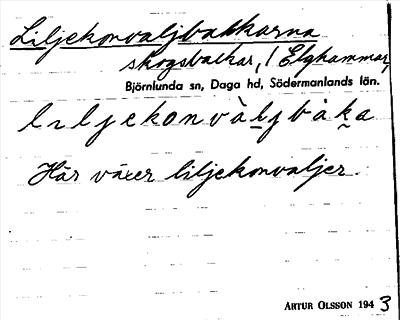 Liljekonvaljbackarna
skogsbackar, / Elghammar,
Björnlunda sn, Daga hd, Södermanlands län.
lıljekonvàḻjbàḵa
Här växer liljekonvaljer.
ARTUR OLSSON 1943